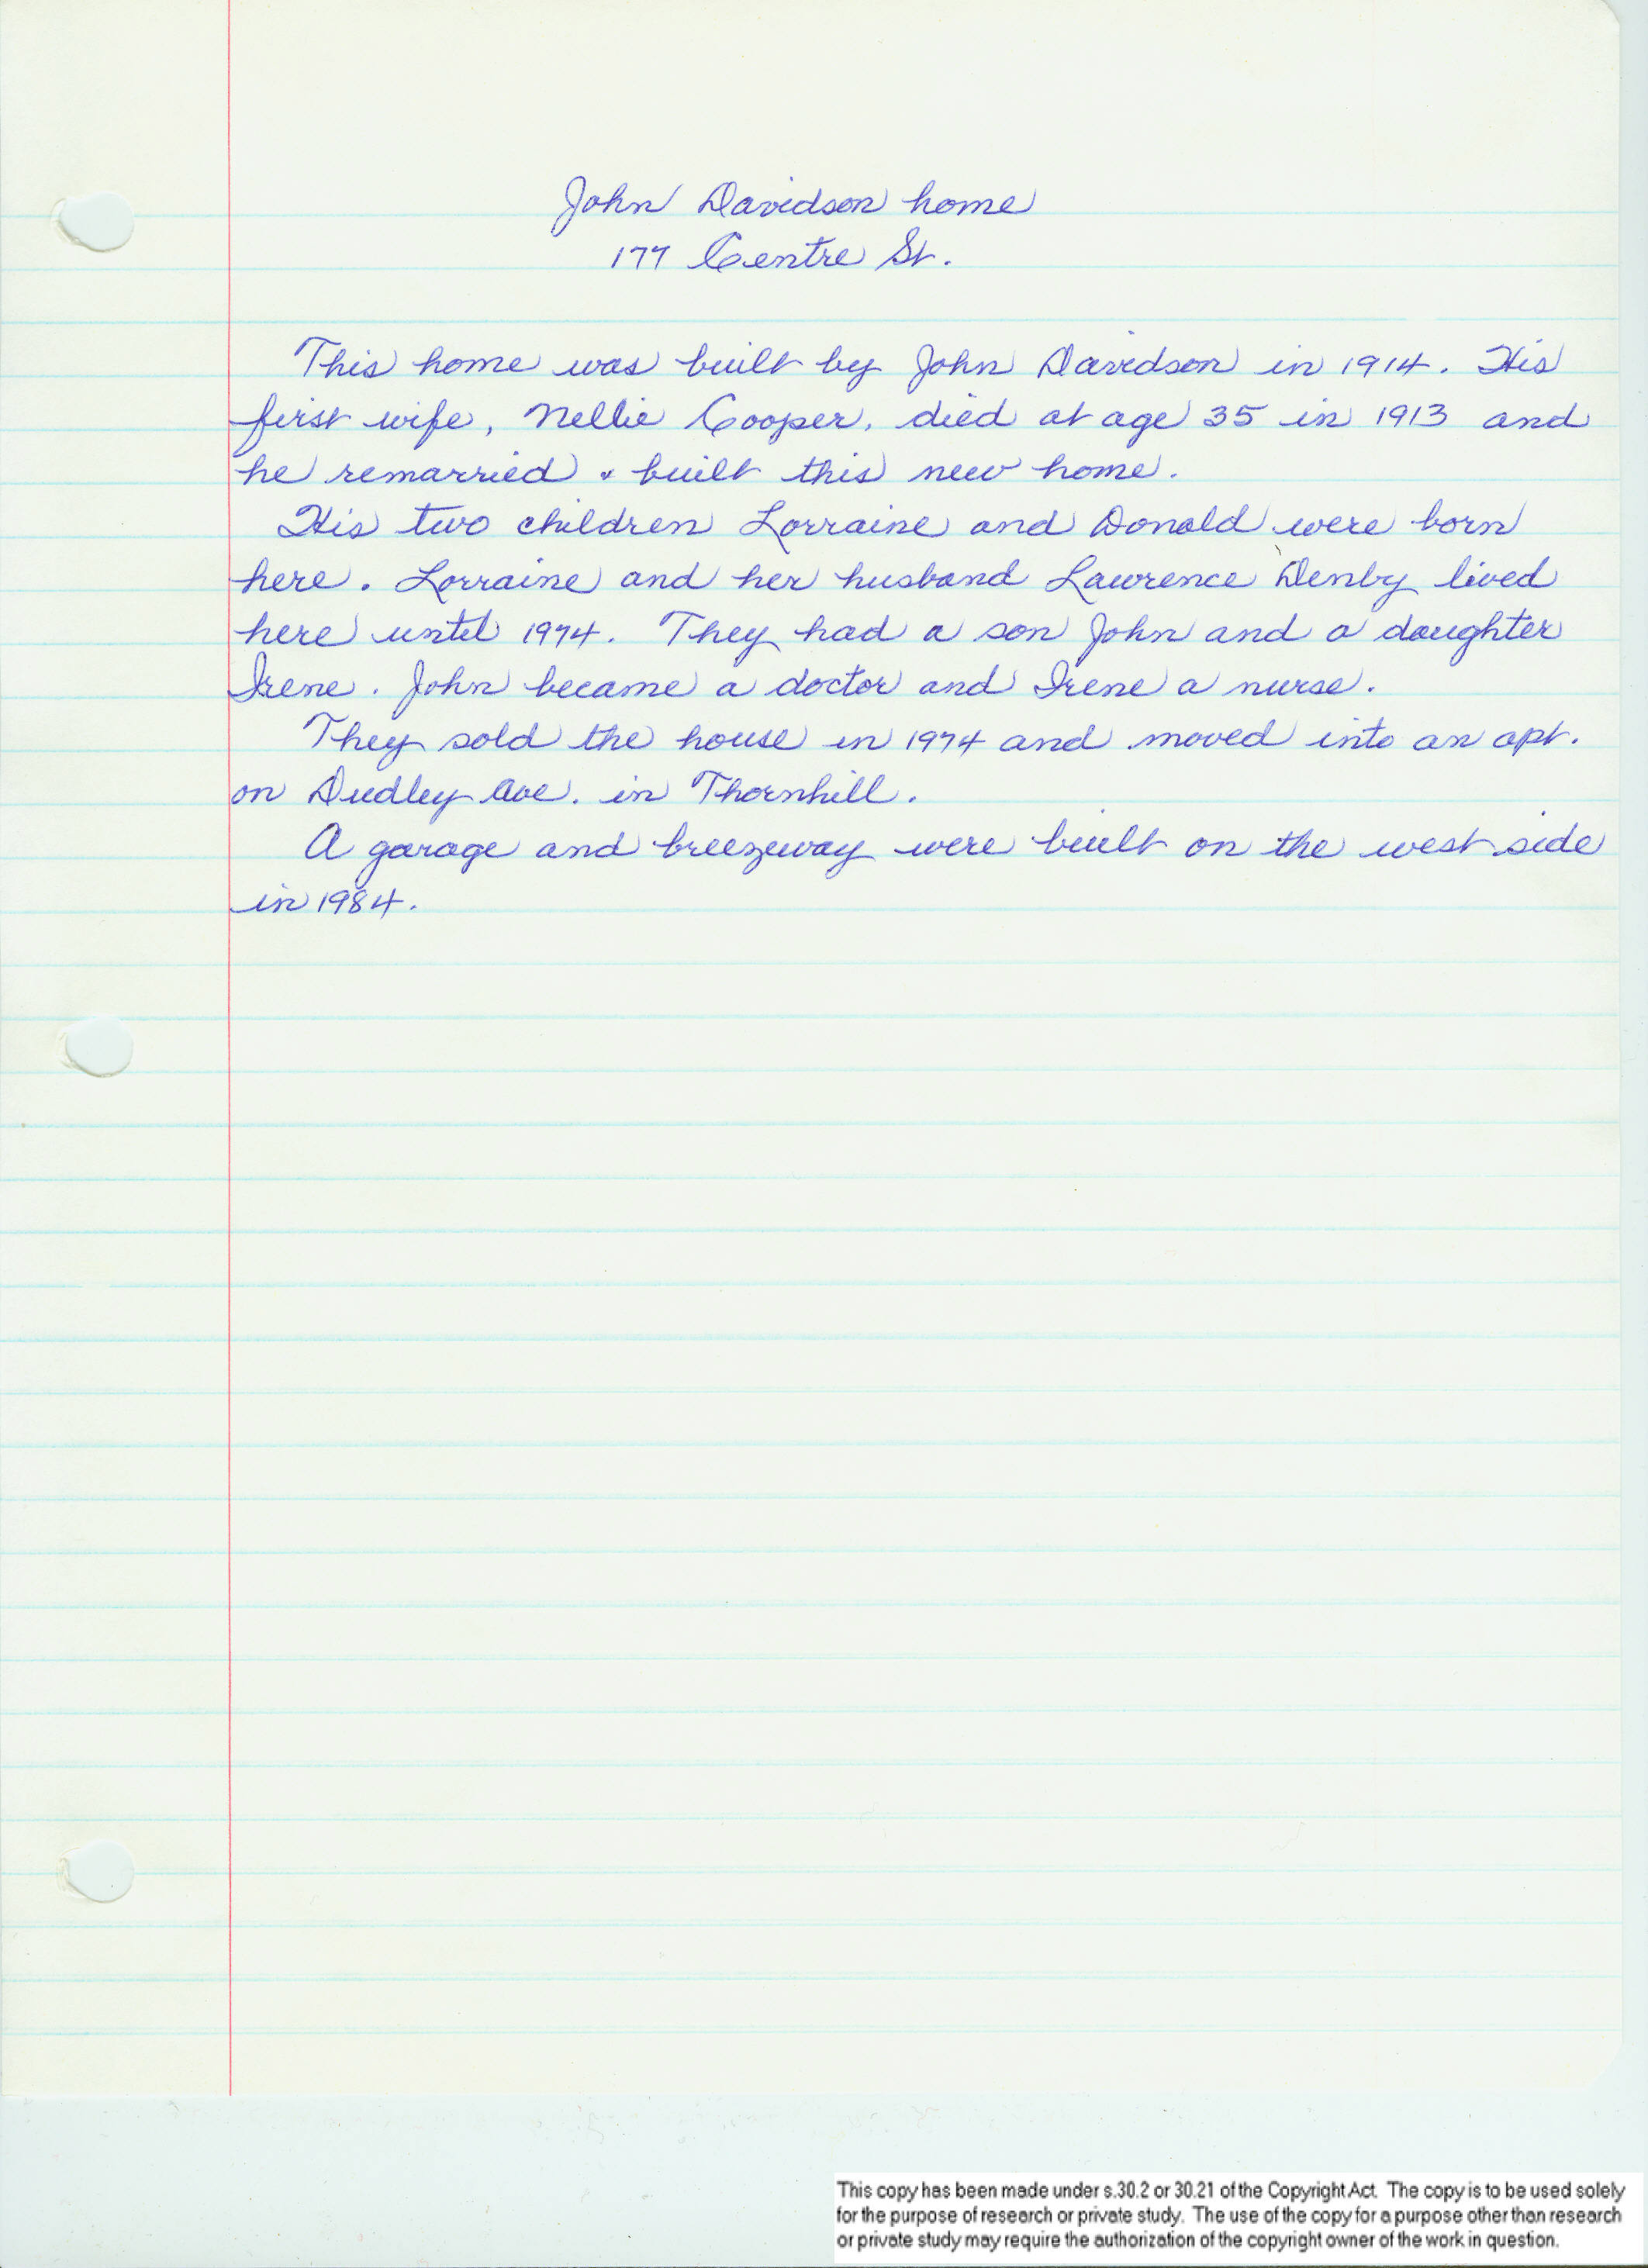 John Davidson home
177 Centre St.
This home was built by John Davidson in 1914. His
first wife, Nellie Cooper, died at age 35 in 1913 and
he remarried & built this new home.
His two children Lorraine and Donald were born
here. Lorraine and her husband Lawrence Denby lived
here until 1974. They had a son John and a daughter
Irene. John became a doctor and Irene a nurse.
They sold the house in 1974 and moved into an apt.
on Dudley Ave. in Thornhill.
A garage and breezeway were built on the west side
in 1984.
This copy has been made under s.30.2 or 30.21 of the Copyright Act. The copy is to be used solely
for the purpose of research or private study. The use of the copy for a purpose other than research
or private study may require the authorization of the copyright owner of the work in question.